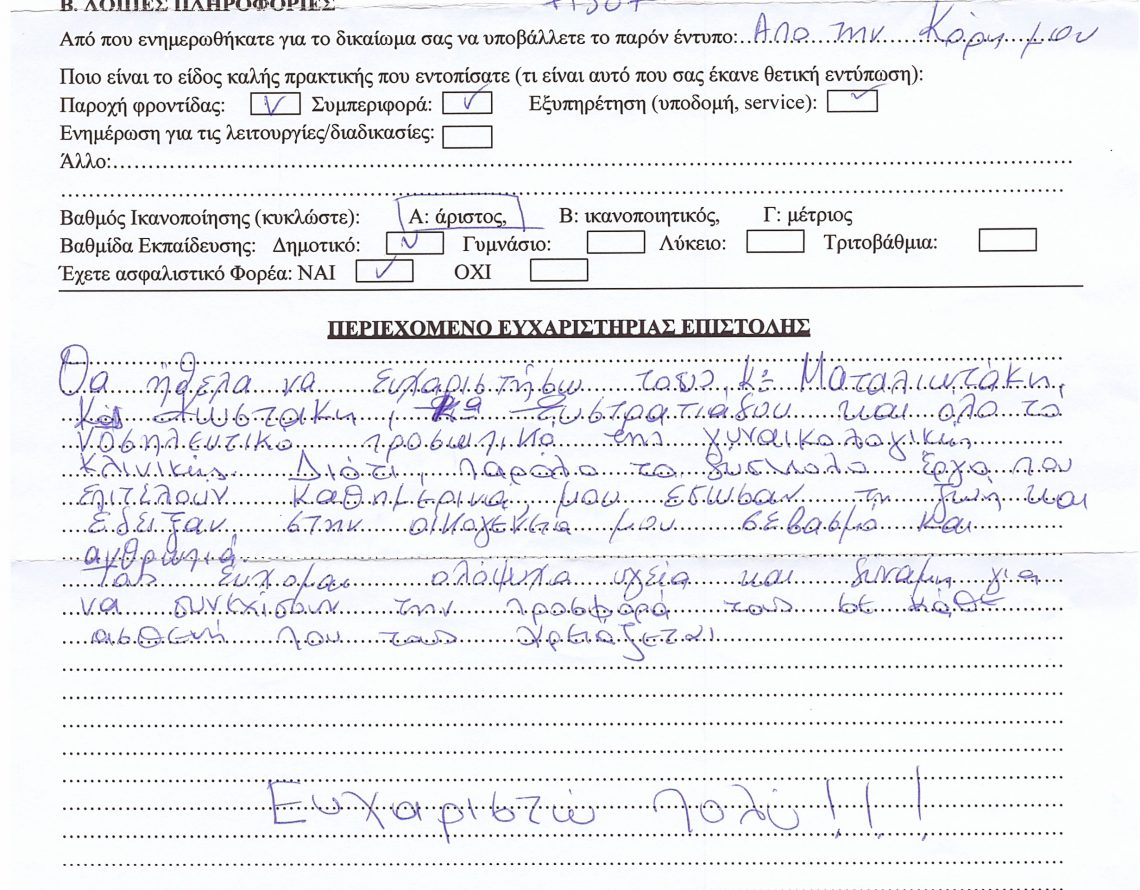 Β. ΛΟΙΠΕΣ ΠΛΗΡΟΦΟΡΙΕΣ
Από που ενημερωθήκατε για το δικαίωμα σας να υποβάλλετε το παρόν έντυπο: Απο την Κόρη μου
Ποιο είναι το είδος καλής πρακτικής που εντοπίσατε (τι είναι αυτό που σας έκανε θετική εντύπωση):
Παροχή φροντίδας: Συμπεριφορά: Εξυπηρέτηση (υποδομή, service):
Ενημέρωση για τις λειτουργίες/διαδικασίες:
Άλλο:
Βαθμός Ικανοποίησης (κυκλώστε): Α: άριστος, Β: ικανοποιητικός, Γ: μέτριος
Βαθμίδα Εκπαίδευσης: Δημοτικό: Γυμνάσιο: Λύκειο: Τριτοβάθμια:
Έχετε ασφαλιστικό Φορέα: ΝΑΙ ΟΧΙ
ΠΕΡΙΕΧΟΜΕΝΟ ΕΥΧΑΡΙΣΤΗΡΙΑΣ ΕΠΙΣΤΟΛΗΣ
Θα ήθελα να ευχαριστήσω τους Κ= Ματαλιωτάκη,
και ολο το
νοσηλευτικο προσωπικο της γυναικολογικης
κλινικής. Διότι, παρόλο το δυσκολο έργο που
επιτελουν καθημερινα, μου εσωσαν τη ζωή και
έδειξαν στην οικογένεια μου σεβασμό και
ανθρωπιά.
Σας ευχομαι ολόψυχα υγεία και δυναμη για
να συνεχίσουν την προσφορά τους σε κάθε
ασθενή που τους χρειάζεται.
Ευχαριστώ πολύ!!!